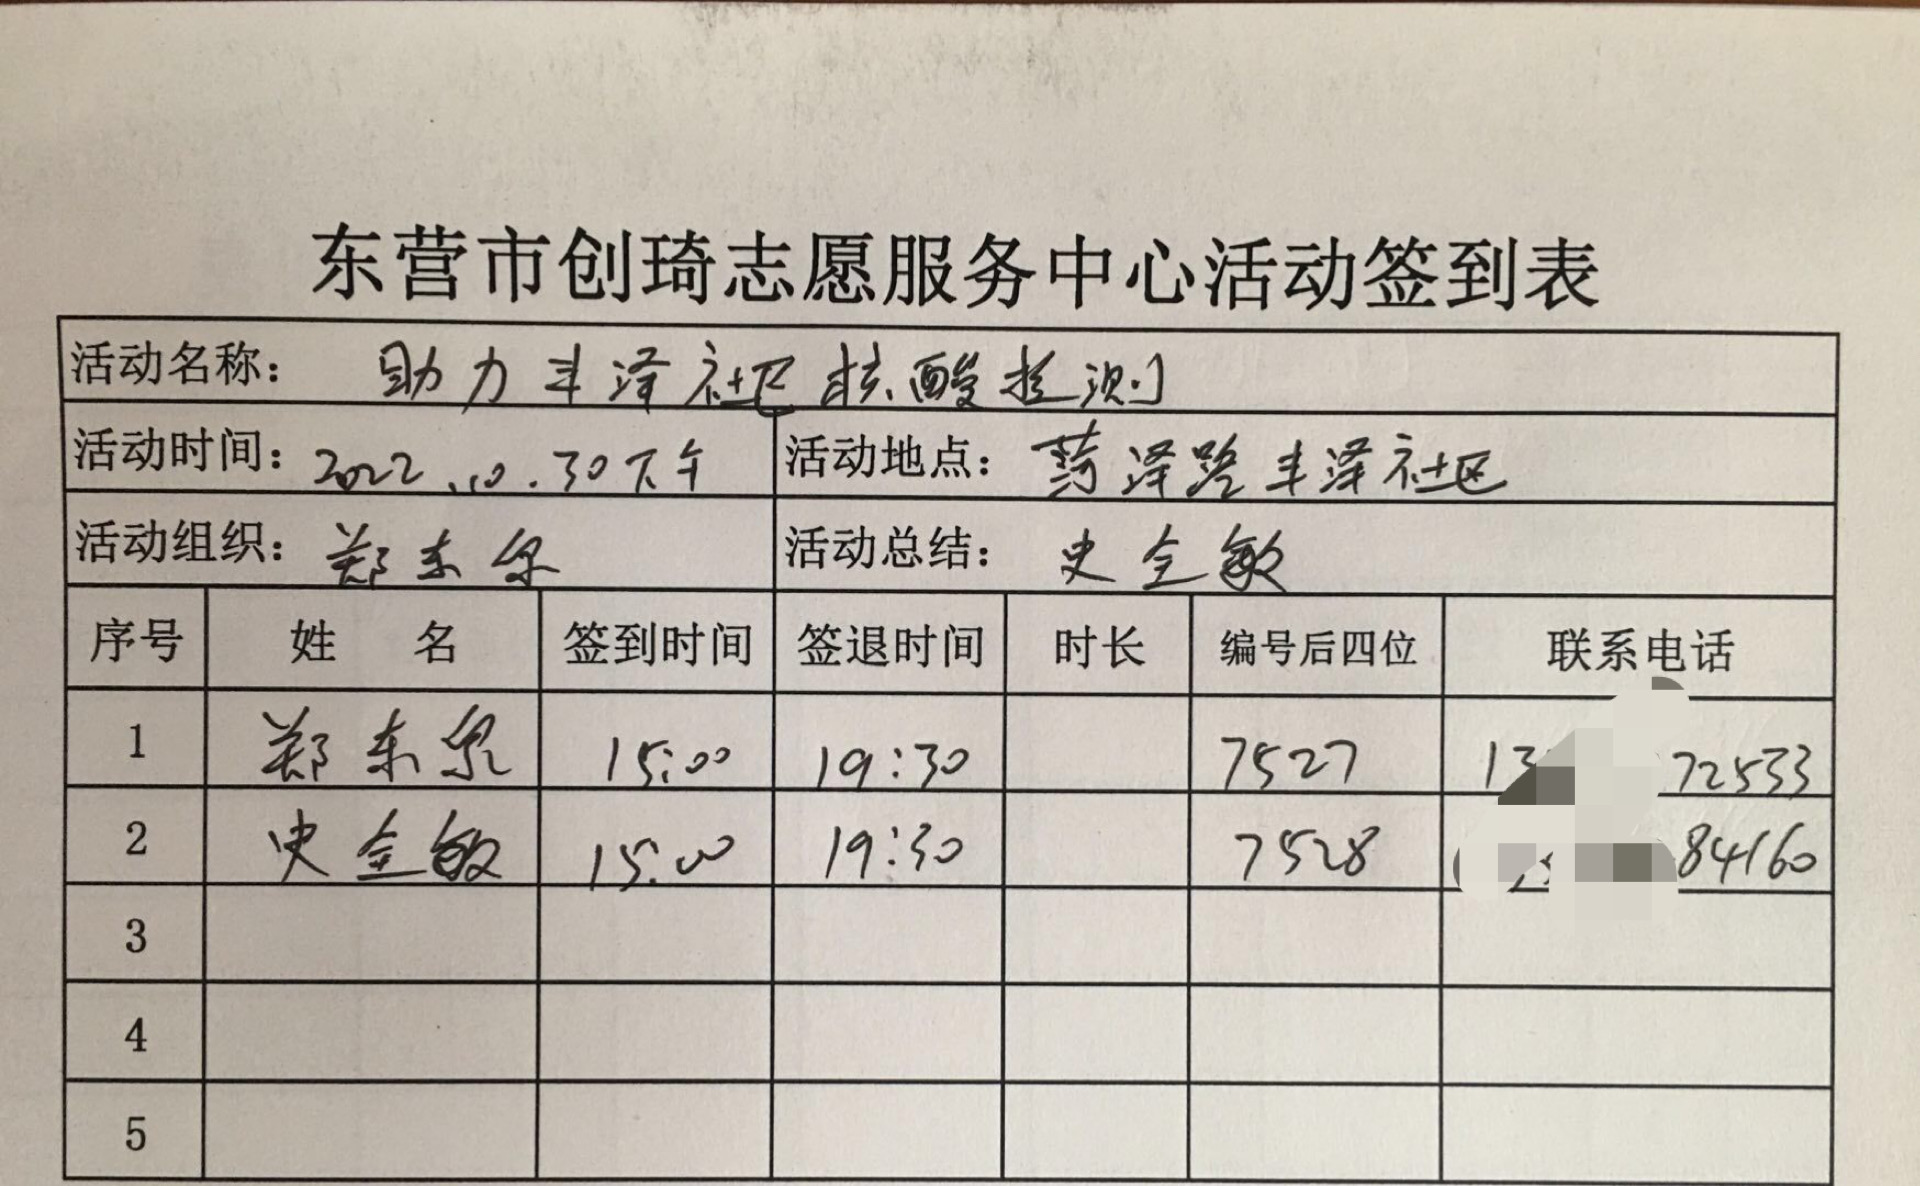 东营市创琦志愿服务中心活动签到表
活动名称： 助力丰泽社区核酸检测
活动时间：2022.10.30下午 活动地点：菏泽路丰泽社区
活动组织：郑东泉 活动总结：史全敏
序号 姓 名 签到时间 签退时间 时长 编号后四位 联系电话
1 郑东泉 15:00 19:30 7527 13 72533
2 史金敏 15:00 19:30 7528 84160
3
4
5